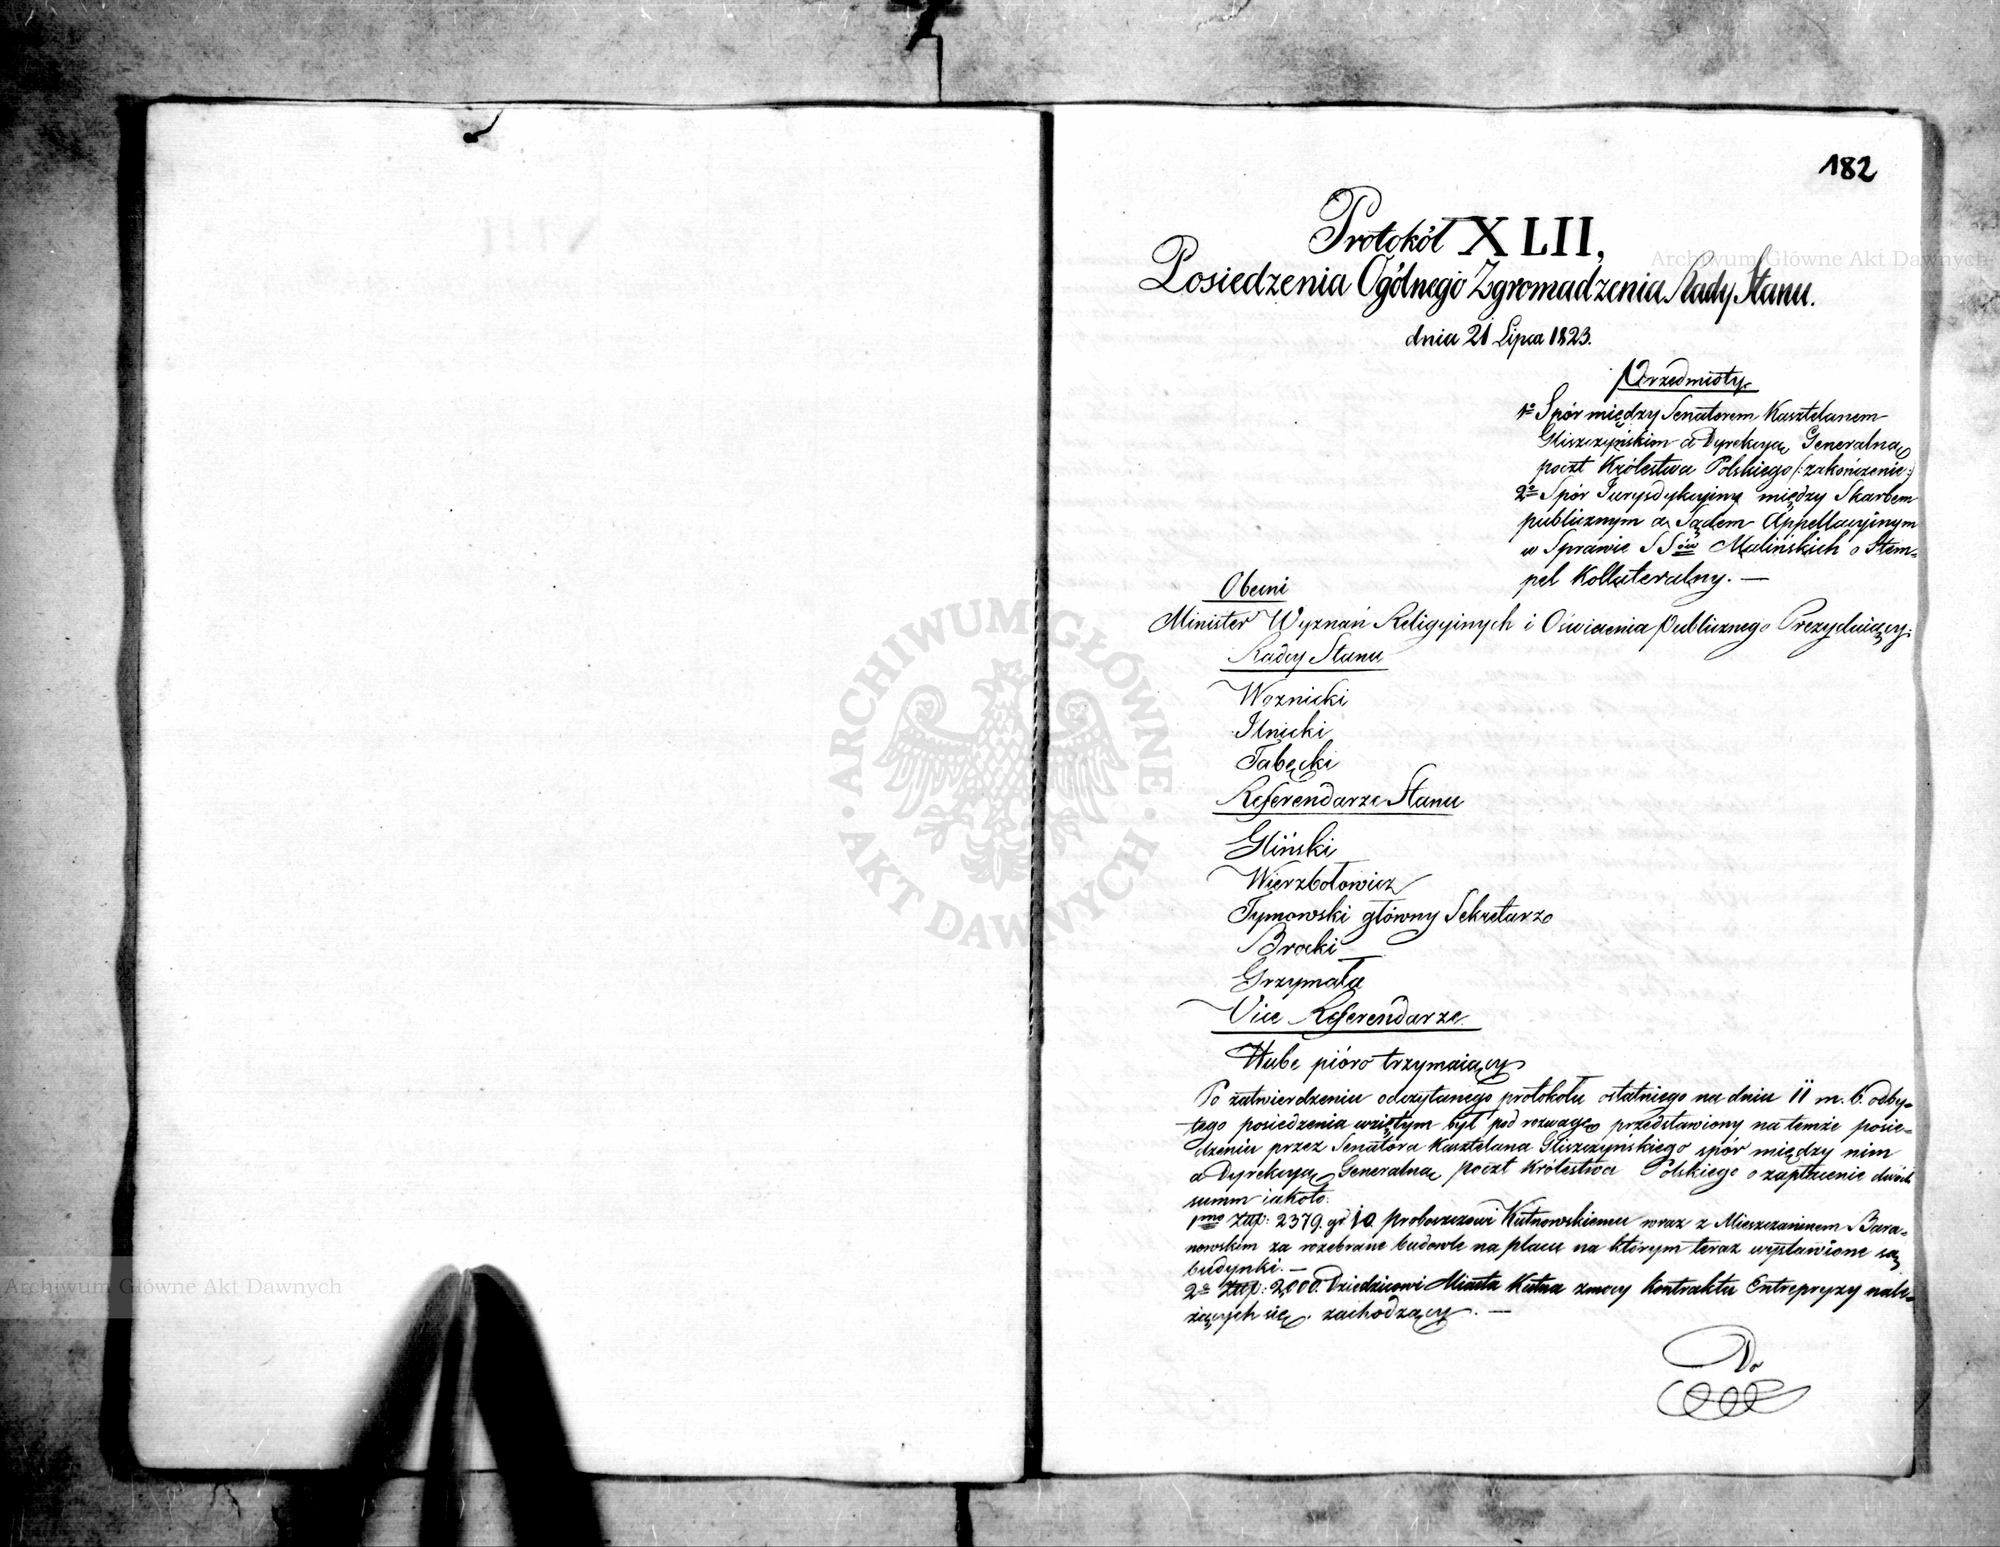 182
Protokół XLII,
Posiedzenia Ogólnego Zgromadzenia Rady Stanu.
dnia 21 Lipca 1823.
Przedmioty
1º Spór między Senatorem Kasztelanem
Gliszczyńskim a Dyrekcyą Generalną
poczt Królestwa Polskiego (:zakończenie:)
2º Spór Jurysdykcyiny między Skarbem
publicznym a Sądem Appellacyinym
w Sprawie SSów Malińskich o Stem=
pel Kollateralny. —
Obecni
Minister Wyznań Religyinych i Oświecenia Publicznego Prezyduiący:
Radcy Stanu
Woznicki
Ilnicki
Tabęcki
Referendarze Stanu
Gliński
Wierzbołowicz
Tymowski główny Sekretarz
Brocki
Grzymała
Vice Referendarze
Hube pióro trzymaiący
Po zatwierdzeniu odczytanego protokołu ostatniego na dniu 11 m. b. odby=
tego posiedzenia wziętym był pod rozwagę przedstawiony na temże posie=
dzeniu przez Senatora Kasztelana Gliszczyńskiego spór między nim
a Dyrekcyą Generalną poczt Królestwa Polskiego o zapłacenie dwóch
summ iakoto:
1mo Złp: 2379. gr 10. proboszczowi Kutnowskiemu wraz z Mieszczaninem Bara=
nowskim za rozebrane budowle na placu na którym teraz wystawione są
budynki. —
2º Złp: 2,000. Dziedzicowi Miasta Kutna z mocy kontraktu Entrepryzy nale=
żących się, zachodzący. —
Do
Archiwum Główne Akt Dawnych
Archiwum Główne Akt Dawnych
ARCHIWUM GŁÓWNE AKT DAWNYCH